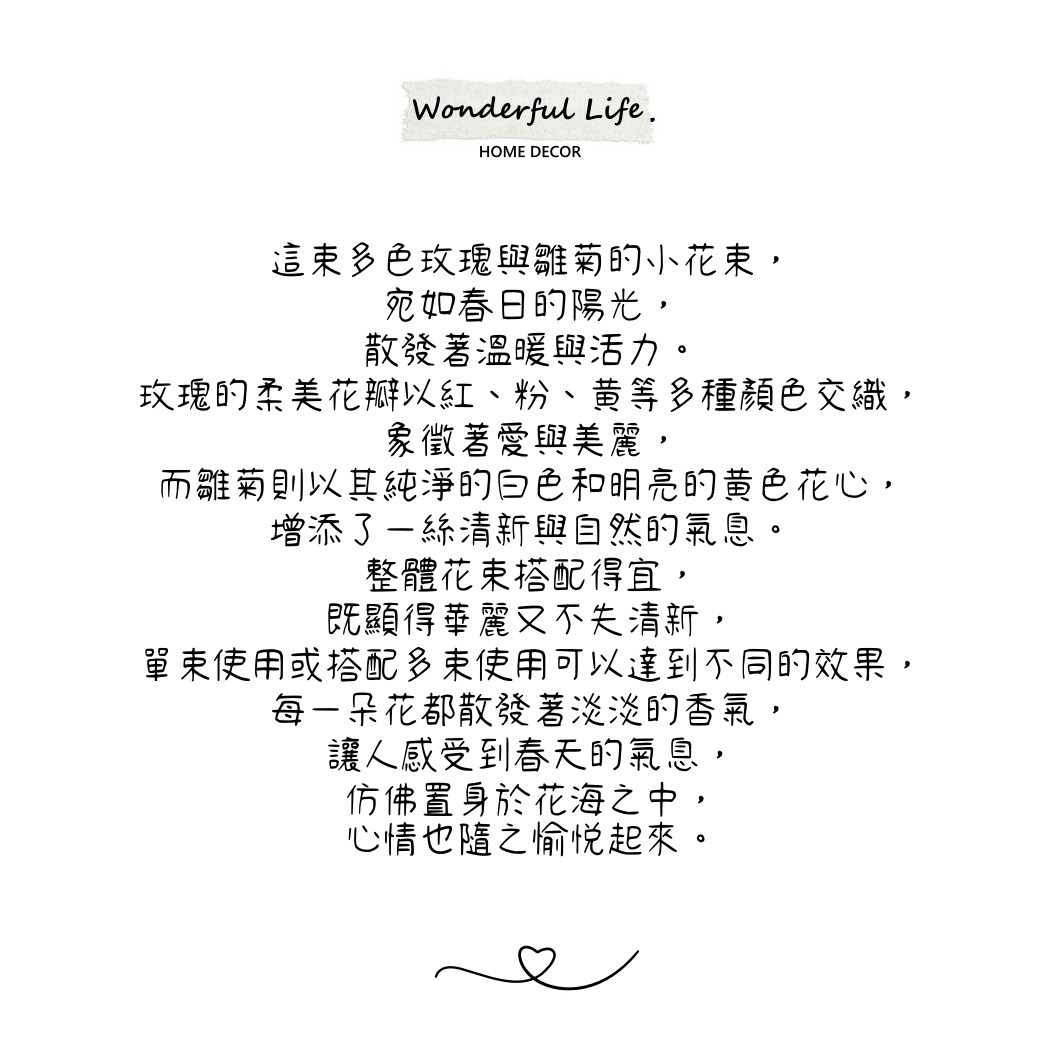 Wonderful Life.
HOME DECOR
這束多色玫瑰與雛菊的小花束，
宛如春日的陽光，
散發著溫暖與活力。
玫瑰的柔美花瓣以紅、粉、黃等多種顏色交織，
象徵著愛與美麗，
而雛菊則以其純淨的白色和明亮的黃色花心，
增添了一絲清新與自然的氣息。
整體花束搭配得宜，
既顯得華麗又不失清新，
單束使用或搭配多束使用可以達到不同的效果，
每一朵花都散發著淡淡的香氣，
讓人感受到春天的氣息，
仿佛置身於花海之中，
心情也隨之愉悅起來。